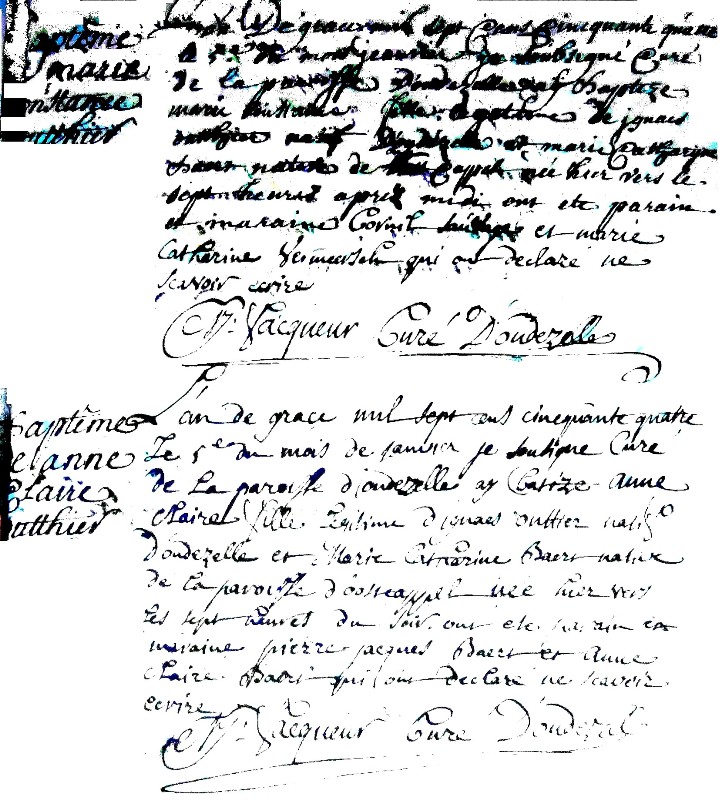 Baptême
marie
Constance
outthier
L'an De grace mil sept Cens Cinequante quatre
le 5.e du mois de janvier je soubsigné Curé
de la paroisse Doudezelle ay Baptize
marie Constance fille Legitime De ignaes
outthier natif D'oudezelle et marie Catharine
Baert native de née hier vers le
sept heures apres midi ont ete parain
et maraine Cornil et marie
Catherine qui ont declaré ne
scavoir ecrire
Vacqueur Curé D'oudezelle
Baptême
De anne
Claire
outthier
L'an de grace mil sept cens cinequante quatre
Le 5.e du mois de janvier je soutigne Curé
de La paroisse d'joudezelle ay Batize Anne
Claire fille Legitime d'ignaes outtier natif
D'oudezelle et Marie Catharine Baert native
de La paroisse d'oosteappel née hier vers
Les sept heures du soir ont ete parain et
maraine pierre jacques Baert et Anne
Claire Baert qui ont declaré ne scavoir
ecrire
Vacqueur Curé D'oudezel